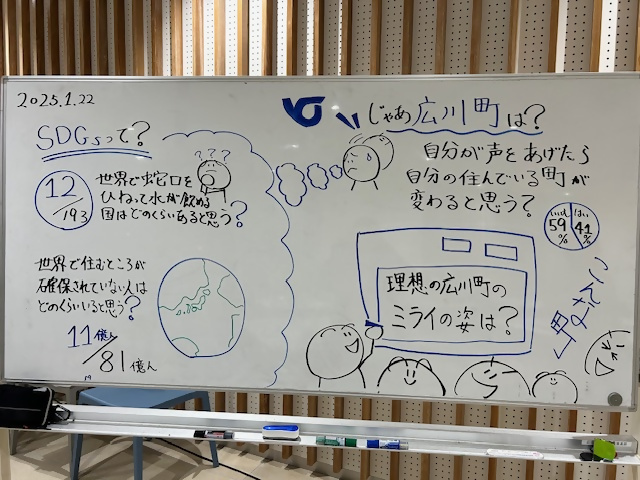 2025.1.22
SDGsって?
12/193
世界で蛇口を
ひねって水が飲める
国はどのくらいあると思う?
? ? ?
世界で住むところが
確保されていない人は
どのくらいいると思う?
11億人/81億人
じゃあ広川町は?
自分が声をあげたら
自分の住んでいる町が
変わると思う?
いいえ 59%
はい 41%
理想の広川町の
ミライの姿は?
こんな町